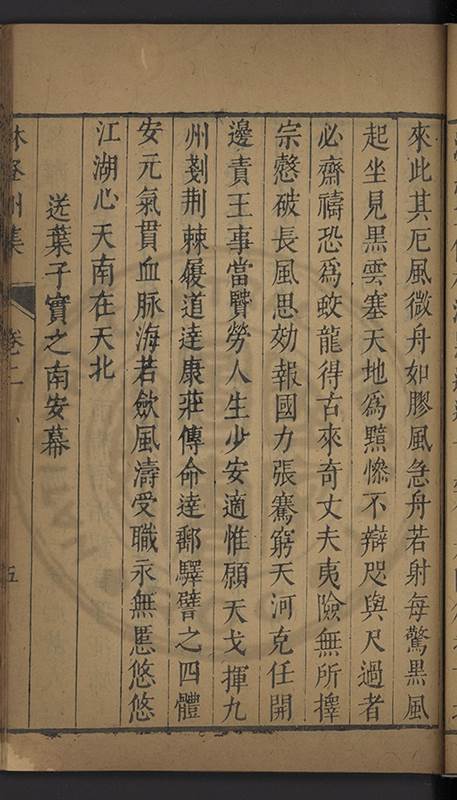 來此其厄風微舟如膠風急舟若射每驚黒風
起坐見黒雲塞天地爲黯慘不辯咫與尺過者
必齋禱恐爲蛟龍得古來奇丈夫夷險無所擇
宗慤破長風思効報國力張騫窮天河克任開
邊責王事當賢勞人生少安適惟願天戈揮九
州剗荆棘履道逹康莊傳命逹郵驛譬之四體
安元氣貫血脉海若歛風濤受職永無慝悠悠
江湖心天南在天北
送葉子實之南安幕
林登州集
卷二
五